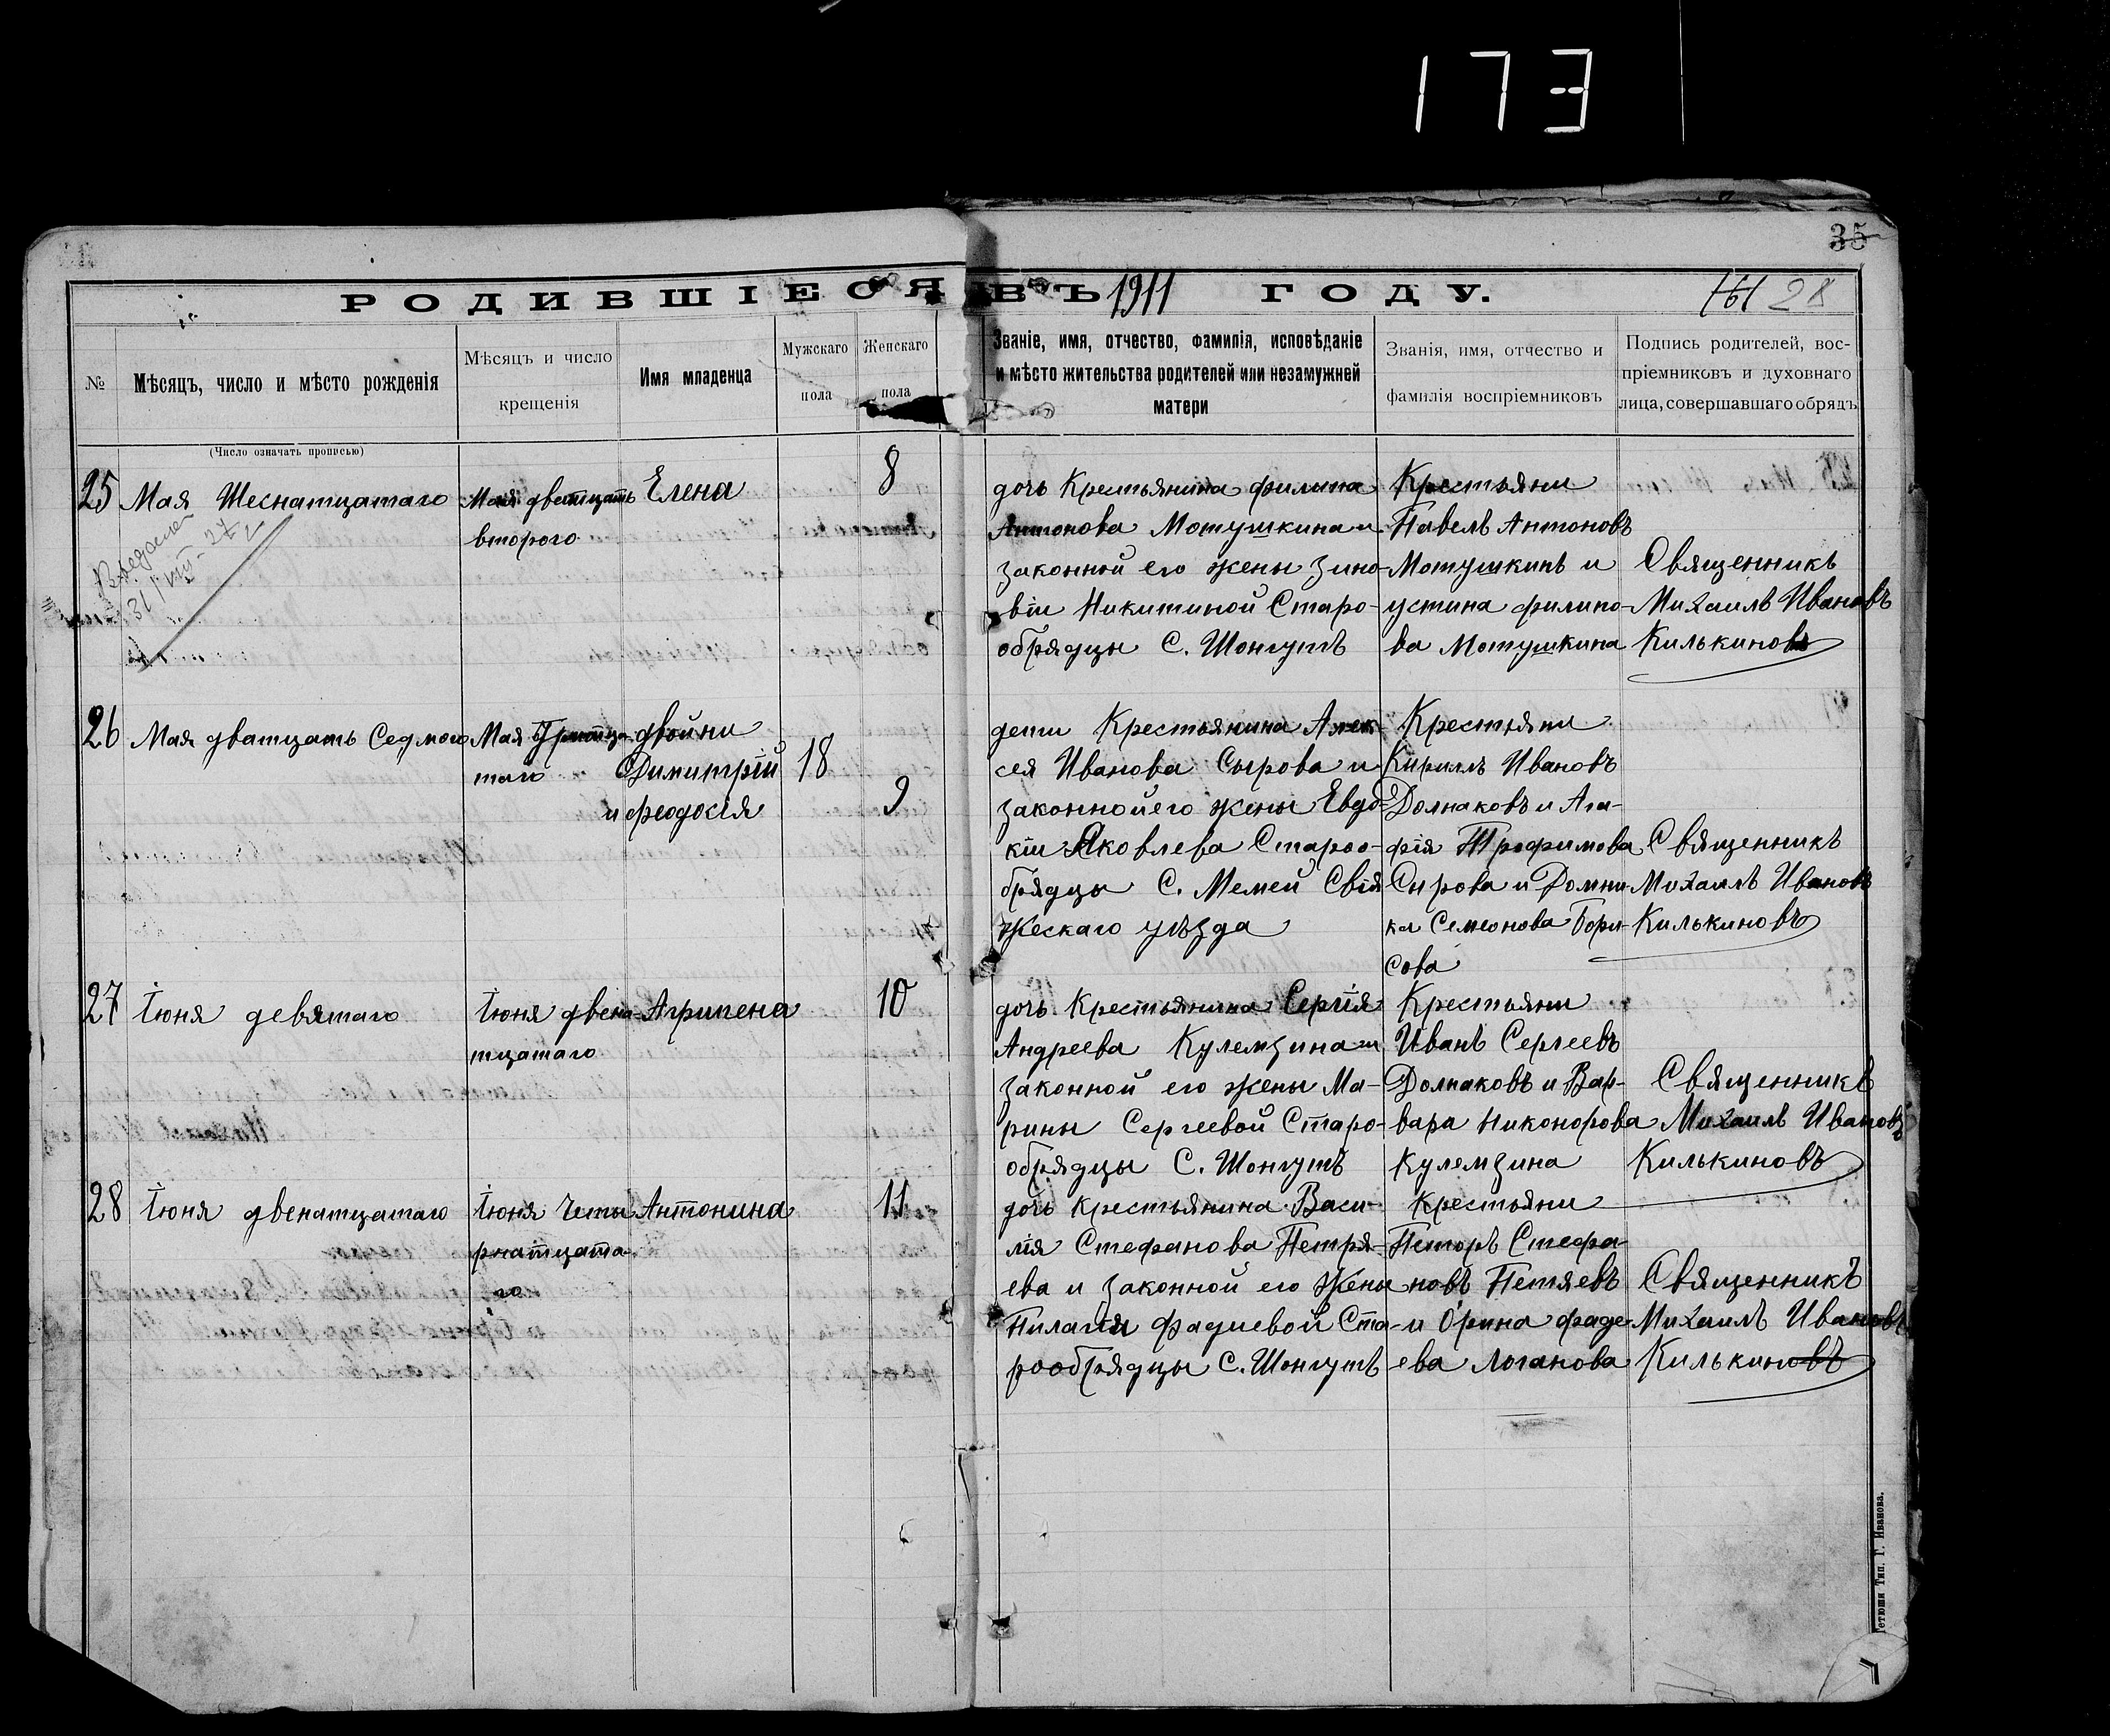 173
35
РОДИВШІЕСЯ ВЪ 1911 ГОДУ.
161 28
№
Мѣсяцъ, число и мѣсто рожденія
Мѣсяцъ и число
крещенія
Имя младенца
Мужскаго
пола
Женскаго
пола
Званіе, имя, отчество, фамилія, исповѣданіе
и мѣсто жительства родителей или незамужней
матери
Званія, имя, отчество и
фамилія воспріемниковъ
Подпись родителей, вос-
пріемниковъ и духовнаго
лица, совершавшаго обрядъ
(Число означать прописью)
25
Мая Шеснатцатаго
31/VIII-27
Мая дватцать
второго
Елена
8
дочь Крестьянина филипа
Антонова Мотушкина и
законной его жены Зино-
віи Никитиной Старо-
обрядцы С. Шонгутъ
Крестьяни
Павелъ Антоновъ
Мотушкинъ и
устина филипо-
ва Мотушкина
Священникъ
Михаилъ Ивановъ
Килькиновъ
26
Мая дватцать Седмого
Мая Тритца-
таго
двойни
Димитрій
и феодосія
18
9
дети Крестьянина Алек-
сея Иванова Сырова и
законной его жены Евдо-
кіи Яковлева Староо-
брядцы С. Мемей Свія
жескаго уѣзда
Крестьяни
Кириллъ Ивановъ
Долнаковъ и Ага-
фія Трофимова
Сырова и Домни
ка Семеонова Бори
сова
Священникъ
Михаилъ Ивановъ
Килькиновъ
27
Іюня девятаго
Іюня двена-
тцатаго
Агрипена
10
дочь Крестьянина Сергія
Андреева Кулемзина и
законной его жены Ма-
рины Сергеевой Старо-
обрядцы С. Шонгутъ
Крестьяни
Иванъ Сергеевъ
Долнаковъ и Вар-
вара Никонорова
Кулемзина
Священникъ
Михаилъ Ивановъ
Килькиновъ
28
Іюня двенатцатаго
Іюня Четы
рнатцата-
го
Антонина
11
дочь крестьянина Васи-
лія Стефанова Петря-
ева и законной его Жены
Пилагіи фадиевой Ста-
рообрядцы С. Шонгутъ
крестьяни
Петоръ Стефа-
новъ Петяевъ
и Орина фаде-
ева Логанова
Священникъ
Михаилъ Ивановъ
Килькиновъ
Тетюши Тип. Г. Иванова.